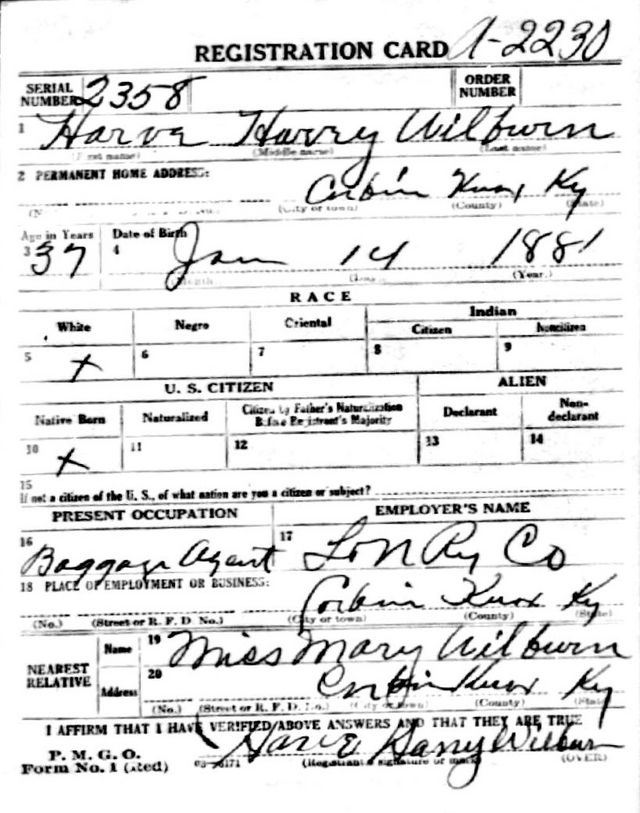 REGISTRATION CARD A-2230
SERIAL NUMBER 2358 ORDER NUMBER
1 Harve Harvey Wilburn
(First name) (Middle name) (Last name)
2 PERMANENT HOME ADDRESS:
Corbin Knox Ky
(City or town) (County) (State)
Age in Years Date of Birth
3 37 4 Jan 14 1881
Month (Year.)
RACE
White Negro Oriental Indian
Citizen Noncitizen
5 x 6 7 8 9
U. S. CITIZEN ALIEN
Native Born Naturalized Citizen by Father's Naturalization Before Registrant's Majority Declarant Non-declarant
10 x 11 12 13 14
15
If not a citizen of the U. S., of what nation are you a citizen or subject?
PRESENT OCCUPATION EMPLOYER'S NAME
16 Baggage Agent 17 L o N Ry Co
18 PLACE OF EMPLOYMENT OR BUSINESS:
Corbin Knox Ky
(No.) (Street or R. F. D. No.) (City or town) (County) (State)
NEAREST RELATIVE Name 19 Miss Mary Wilburn
Address 20 Corbin Knox Ky
(No.) (Street or R. F. D. No.) (City or town) (County) (State)
I AFFIRM THAT I HAVE VERIFIED ABOVE ANSWERS AND THAT THEY ARE TRUE
P. M. G. O.
Form No. 1 (Red) Harve Harry Wilburn
(Registrant's signature or mark) (OVER)